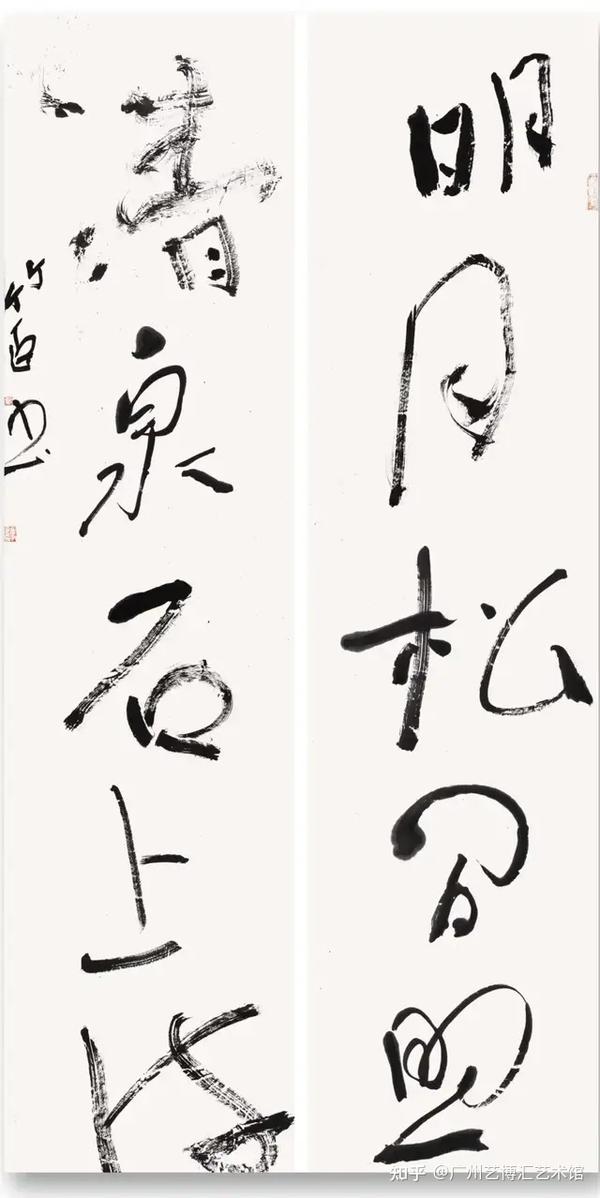 明月松间照
清泉石上流
书
知乎 @广州艺博汇艺术馆